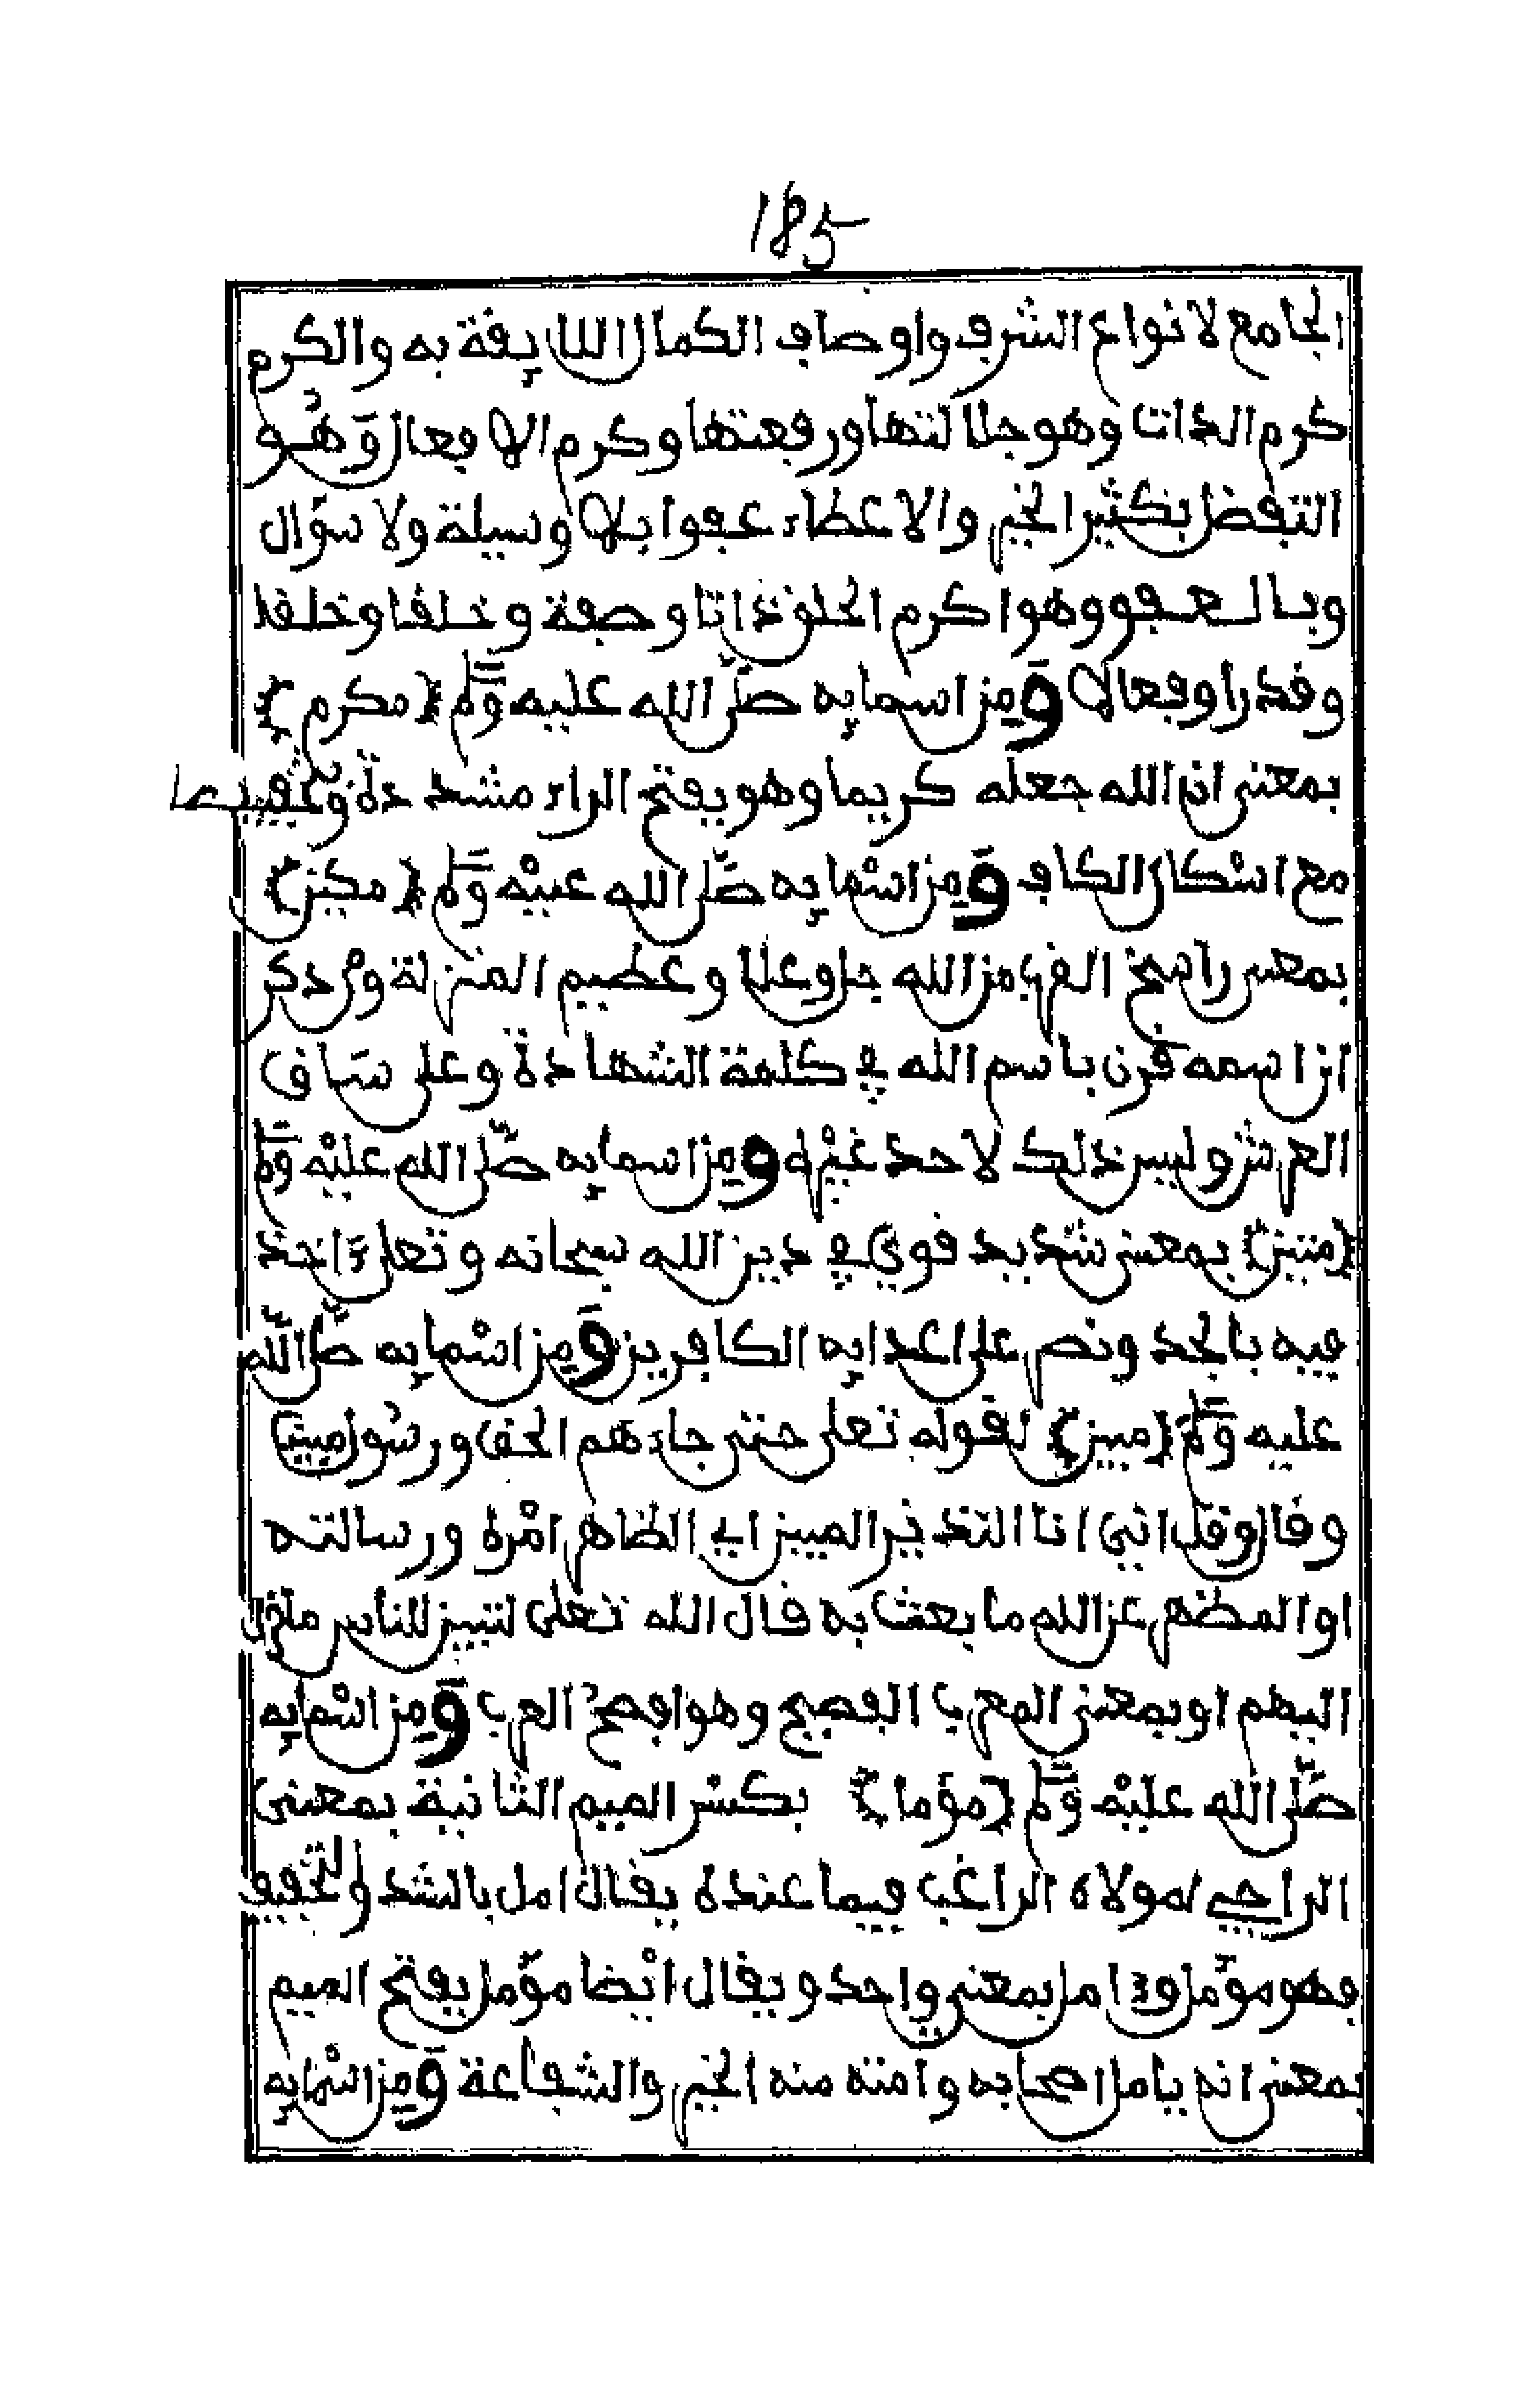 185
الجامع لانواع الشرف واوصاف الكمال اللايقة به والكرم
كرم الذات وهو جلالتها ورفعتها وكرم الافعال وَهُو
التفضل بكثير الخير والاعطاء عفوا بلا وسيلة ولا سؤال
وبالعفو وهو اكرم الخلق ذاتا وصفة وخلقا وخلقا
وقدرا وفعالا وَمِن اسمايِه صَلّى الله عليه وَسَلم {مكرم}
بمعنى ان الله جعله كريما وهو بفتح الراء مشددة وتخفيفها
مع اسْكان الكاف وَمِن اسْمايِه صَلّى الله عليْه وَسَلم {مكين}
بمعنى راسخ القرب من الله جل وعلا وعظيم المنزلة ومن ذكر
ان اسمه قرن باسم الله في كلمة الشهادة وعلى سَاق
العرش وليس ذلك لاحد غيْره ومِن اسمايِه صَلّى الله عليْه وَسَلم
{متين} بمعنى شديد قوي في دين الله سبحانه وتعلى ءاخذ
فيه بالجد ونصر على اعدايِه الكافرين وَمِن اسْمايِه صَلّى اللّه
عليه وَسَلم {مبين} لقوله تعلى حتى جاءهم الحق ورسُول مبين
وقال وقل اني انا النذير المبين اي الظاهر امْره ورسالته
او المظهر عن الله ما بعث به قال الله تعلى لتبين للناس ما نزل
اليهم او بمعنى المعرب الفصيح وهو افصحُ العرب وَمِن اسْمايِه
صَلّى اللّه عليْه وَسَلم {مؤمل} بكسْر الميم الثانية بمعنى
الراجي لمولاه الراغب فيما عنده يقال امل بالشد والتخفيف
فهو مؤمّل وءامل بمعنى واحد ويقال ايْضا مؤمّل بفتح الميم
بمعنى انه يامل اصحابه وامته منه الخير والشفاعة وَمِن اسْمايِه